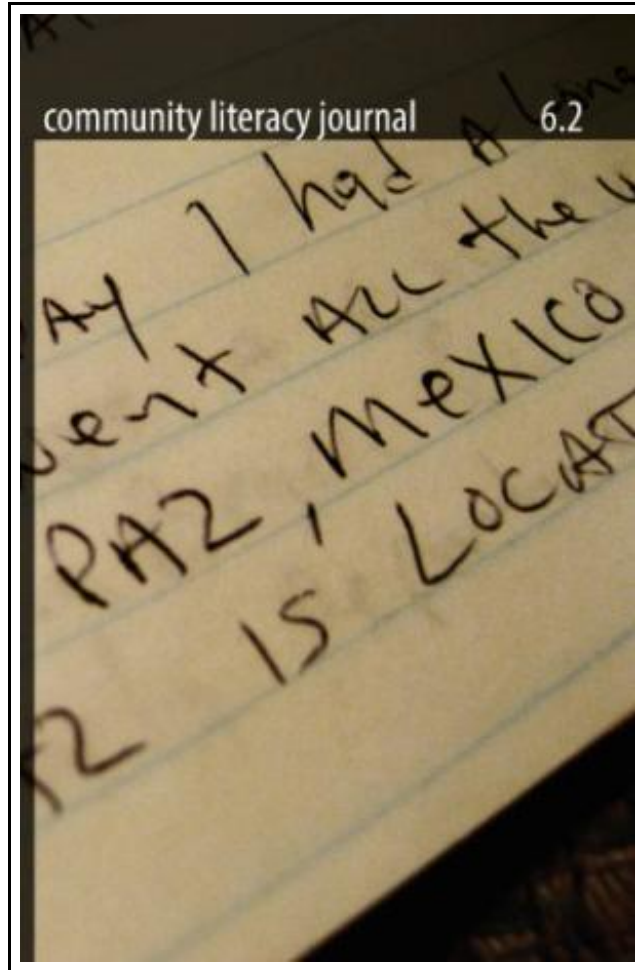 community literacy journal 6.2
I had A
went All the
PAZ, MEXICO
IS LOCAT